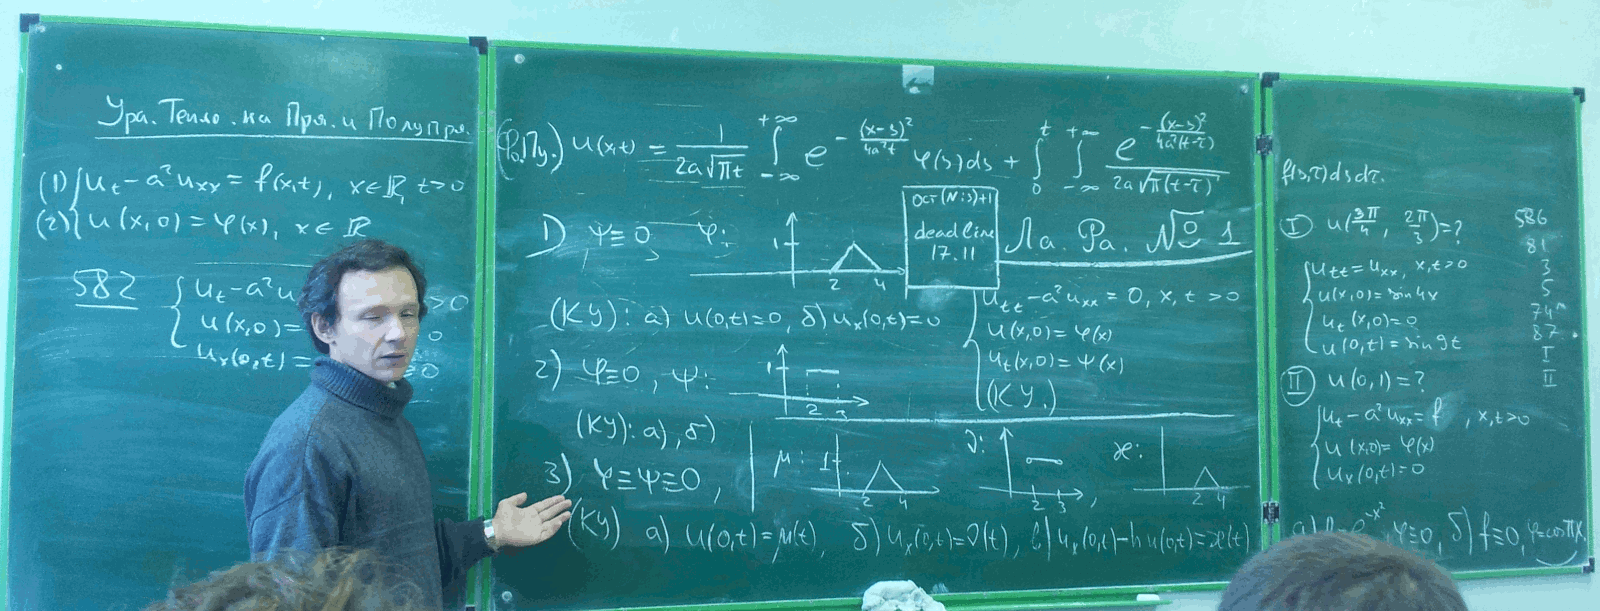 Ура. Тепло. на Пря. и Полупря.
(1) { u_t - a² u_xx = f(x,t), x ∈ ℝ, t>0
(2) { u(x,0) = φ(x), x ∈ ℝ
582 { u_t - a² u >0
u(x,0)= 0
u_x(0,t)= ≡0
(Ф.Пу.) u(x,t) = 1/(2a√πt) ∫_{-∞}^{+∞} e^{-(x-s)²/4a²t} φ(s)ds + ∫_0^t ∫_{-∞}^{+∞} e^{-(x-s)²/4a²(t-τ)} / 2a√π(t-τ)
f(s,τ)dsdτ.
1) ψ≡0, φ: 1 2 4
ост(N:3)+1
deadline
17.11
Ла. Ра. № 1
(КУ): а) u(0,t)=0, б) u_x(0,t)=0
{ u_tt - a² u_xx = 0, x, t > 0
u(x,0) = φ(x)
u_t(x,0) = ψ(x)
(КУ.)
2) φ≡0, ψ: 1 2 3
(КУ): а), б)
3) φ≡ψ≡0, μ: 1 2 4 ν: 2 3, æ: 2 4
(КУ) а) u(0,t)=μ(t), б) u_x(0,t)=ν(t), в) u_x(0,t)-hu(0,t)=æ(t)
I u(3π/4, 2π/3)=?
{ u_tt = u_xx, x,t>0
u(x,0)=sin4x
u_t(x,0)=0
u(0,t)=sin9t
II u(0,1)=?
{ u_t - a² u_xx = f, x,t>0
u(x,0)= φ(x)
u_x(0,t)=0
e^{-x²}, φ≡0, б) f≡0, φ=cosπx.
586
81
3
5
74
87.
I
II